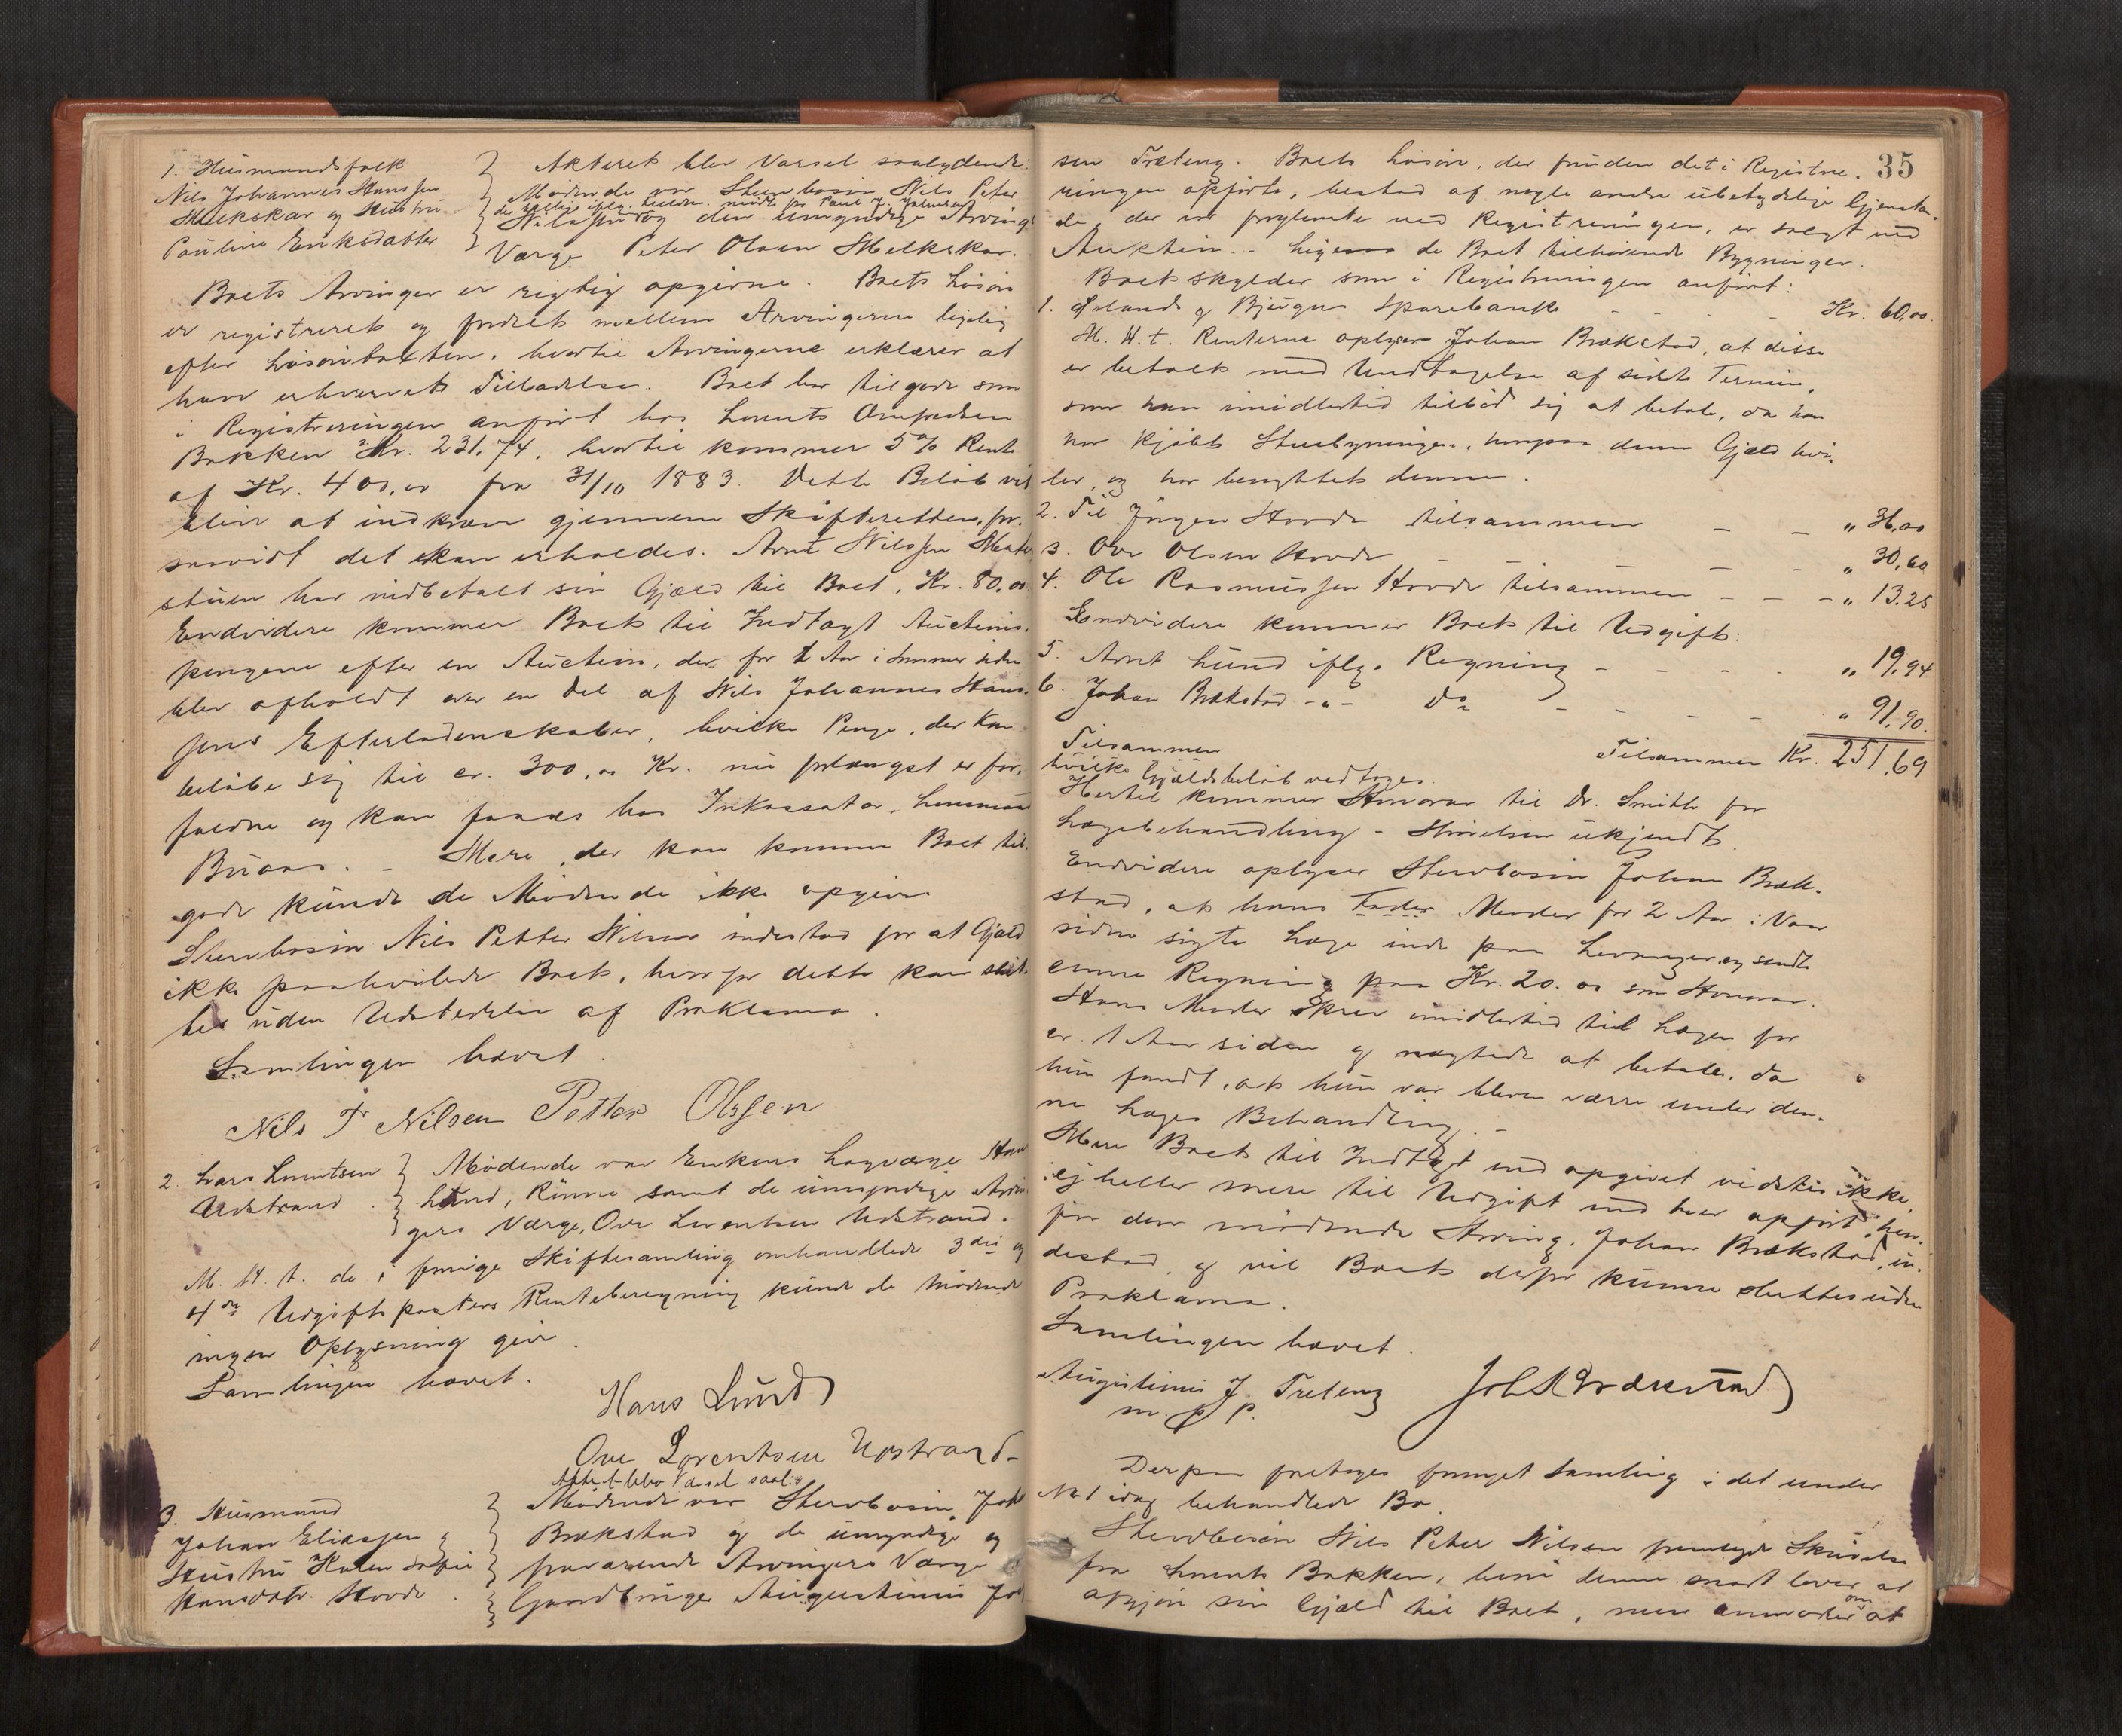 1. Husmandsfolk
Nils Johannes Hanssen
Melkskar og Hustru
Pauline Eriksdatter
Akteret blev Varsel saalydende:
Mødende var Stervbosøn Nils Peter
Nilssen og den umyndige Arvings
Værge Peter Olsen Melkskar.
Boets Arvinger er rigtig opgivne. Boets Løsøre
er registreret og fordelt mellem Arvingerne ligelig
efter Løsøretaxten, hvortil Arvingerne erklærer at
have erhvervet Tilladelse. Boet har tilgode som
i Registreringen anført hos Lorents Arnfindsen
Bakken Kr. 231,74, hvortil kommer 5 % Rente
af Kr. 400,00 fra 31/10 1883. Dette Beløb vil
blive at indkræve gjennem Skifteretten, for-
saavidt det kan erholdes. Arnt Nilssen
stuen har indbetalt sin Gjæld til Boet, Kr. 80,00
Endvidere kommer Boet til Indtægt Auctions-
pengene efter en Auction, der for 1 Aar i Sommer siden
blev afholdt over en Del af Nils Johannes Hans-
sens Efterladenskaber, hvilke Penge, der kan
beløbe sig til cr. 300,00 Kr. nu forlængst er for-
faldne og kan faaes hos Inkassator, Lensmand
Buaas. - Mere, der kan komme Boet til-
gode kunde de Mødende ikke opgive
Stervbosøn Nils Petter Nilsen indestod for at Gjæld
ikke paahvilede Boet, hvorfor dette kan slut-
tes uden Udstedelse af Proklama.
Samlingen hævet.
Nils P Nilsen Petter Olssen
2. Lars Lorntsen
Udstrand.
Mødende var Enkens Lagværge Hans
Lund, Rinne samt de umyndige Arvin-
gers Værge, Ove Lorentsen Udstrand.
M. H. t. de i forrige Skiftesamling omhandlede 3die og
4de Udgiftsposters Renteberegning kunde de Mødende
ingen Oplysning give.
Samlingen hævet.
Hans Lund
Ove Lorentsen Udstrand
3. Husmand
Johan Eliassen og
Hustru Karen Sofie
Hansdtr. Hovde
Akteret blev Varsel saal.:
Mødende var Stervbosøn Joh
Brækstad og de umyndige og
fraværende Arvingers Værge
Gaardbruger Augustinus Jo
35
sen Træteng. Boets Løsøre, der foruden det i Registre-
ringen opførte, bestod af nogle andre ubetydelige Gjenstan-
de, der var forglemte ved Registreringen, er solgt ved
Auction. - Ligesaa de Boet tilhørende Bygninger.
Boet skylder som i Registreringen anført:
1. Ørlands og Bjugns Sparebank - - - Kr. 60,00.
M. H. t. Renterne oplyser Johan Brækstad, at disse
er betalt med Undtagelse af sidste Termin,
som han imidlertid tilbød sig at betale, da han
har kjøbt Stuebygningen, hvorpaa denne Gjæld hvi-
ler, og har benyttet denne.
2. Til Jørgen Hovde tilsammen - - „ 36,00
3. Ove Olsen Hovde - - - - „ 30,60
4. Ole Rasmussen Hovde tilsammen - - - „ 13.25
Endvidere kommer Boet til Udgift:
5. Arnt Lund iflg. Regning - - - - „ 19,94
6. Johan Brækstad -„- do - - - - „ 91,90.
Tilsammen Kr. 251,69
Tilsammen
hvilke Gjældsbeløb vedtoges.
Hertil kommer Honorar til Dr. Smith for
Lægebehandling - Størrelsen ukjendt.
Endvidere oplyser Stervbosøn Johan Bræk-
stad, at hans Fader Moder for 2 Aar i Vaar
siden søgte Læge inde paa Levanger og sendte
enne Regning paa Kr. 20.00 som Honorar.
Hans Moder skrev imidlertid til Lægen for
cr. 1 Aar siden og nægtede at betale, da
hun fandt, at hun var bleven værre under den-
ne Læges Behandling. -
Mere Boet til Indtægt end opgivet vidstes ikke,
ej heller mere til Udgift end her opført, hvor-
for den mødende Arving, Johan Brækstad, in-
destod, og vil Boet derfor kunne sluttes uden
Proklama.
Samlingen hævet.
Augustinus J. Treteng
m. p. P.
Joh Brækstad
Derpaa foretoges fornyet Samling i det under
No 1 idag behandlede Bo.
Stervbosøn Nils Peter Nilsen fremlagde Skrivelse
fra Lornts Bakken, hvori denne snart lover at
opgjøre sin Gjæld til Boet, men anmoder om at